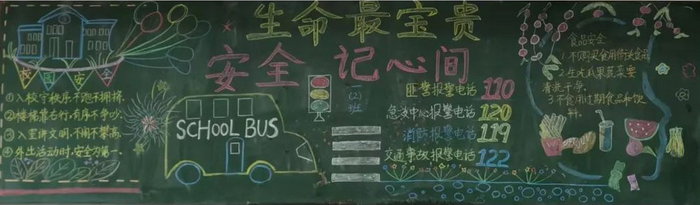 生命最宝贵
安全 记心间
校园安全
①入校守秩序不跑不拥挤.
②楼梯靠右行,有序不争吵.
③入室讲文明,不闹不攀高.
④外出活动时,安全为第一.
SCHOOL BUS
(2)
班
匪警报警电话 110
急救中心报警电话 120
消防报警电话 119
交通事故报警电话 122
食品安全
1.不购买食用
2.生吃瓜果蔬菜要
清洗干净.
3.不食用过期食品和饮
料.